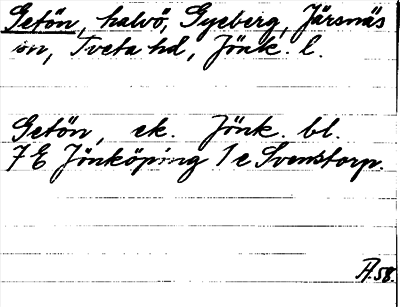 Getön, halvö, Gyeberg, Järsnäs
sn, Tveta hd, Jönk. l.
Getön, ek. Jönk. bl.
7 E Jönköping 1 e Svenstorp.
A.58.